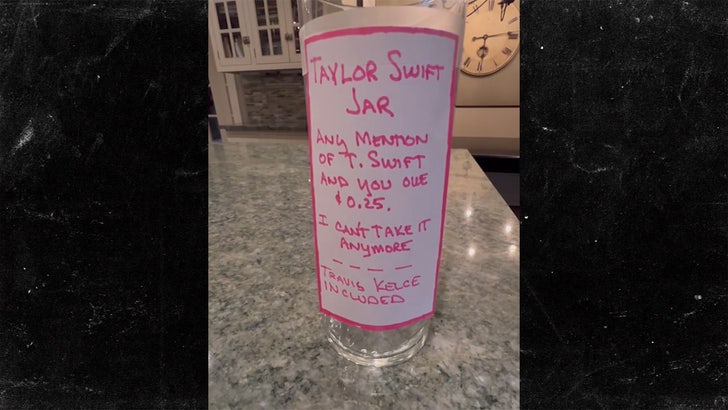 TAYLOR SWIFT
JAR
ANY MENTION
OF T. SWIFT
AND YOU OWE
$0.25.
I CAN'T TAKE IT
ANYMORE
----
TRAVIS KELCE
INCLUDED